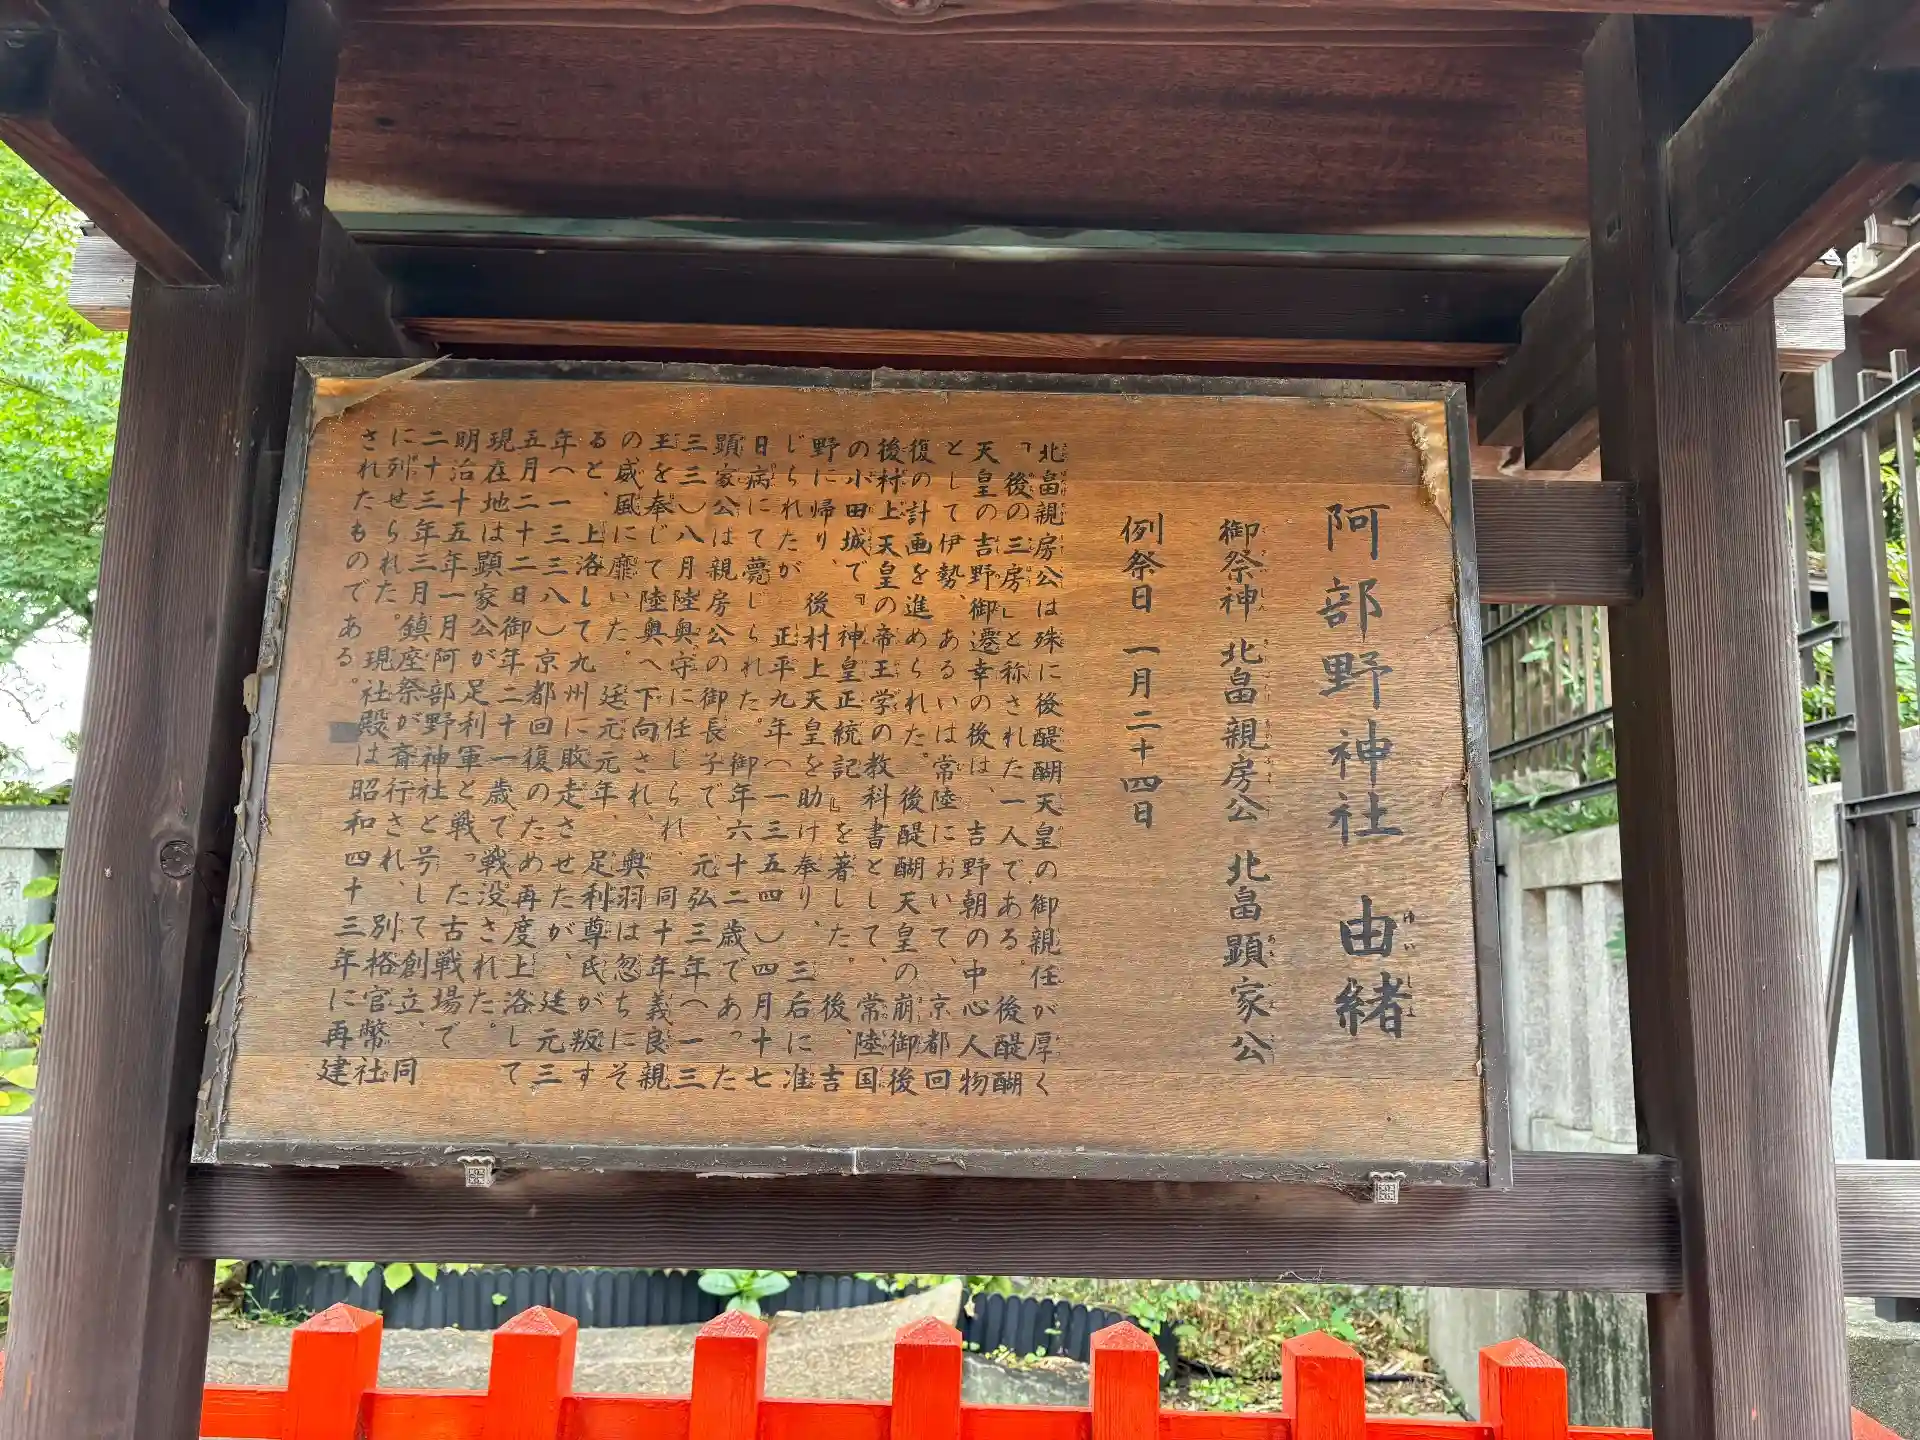 阿部野神社 由緒
御祭神 北畠親房公 北畠顕家公
例祭日 一月二十四日
北畠親房公は殊に後醍醐天皇の御親任が厚く
『後の三房』と称された一人である。後醍醐
天皇の吉野御遷幸の後は、吉野朝の中心人物
として伊勢、あるいは常陸において、京都回
復の計画を進められた。後醍醐天皇の崩御後
後村上天皇の帝王学の教科書として、常陸国
の小田城で『神皇正統記』を著した。後、吉
野に帰り、後村上天皇を助け奉り、三后に准
じられたが正平九年(一三五四)四月十七
日病にて薨じられた。御年六十二歳であった
顕家公は親房公の御長子で、元弘三年(一三
三三)八月陸奥守に任じられ、同十年義良親
王を奉じて陸奥へ下向され、奥羽は忽ちにそ
の威風に靡いた。延元元年、足利尊氏が叛す
ると、上洛して九州に敗走させたが、延元三
年(一三三八)京都回復のため再度上洛して
五月二十二日御年二十一歳で戦没された。
現在地は顕家公が足利軍と戦った古戦場で
明治十五年一月阿部野神社と号して創立、同
二十三年三月鎮座祭が斎行され、別格官幣社
に列せられた。現社殿は昭和四十三年に再建
されたものである。